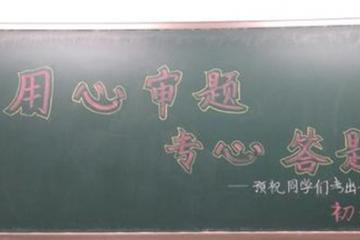 用心审题
专心答题
——预祝同学们考出
初